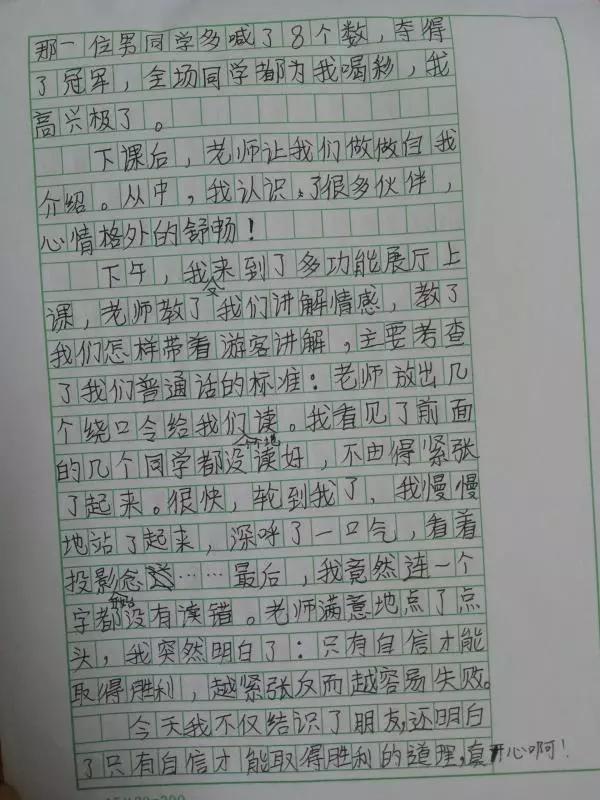 那一位男同学多喊了8个数，夺得
了冠军，全场同学都为我喝彩，我
高兴极了。
下课后，老师让我们做做自我
介绍。从中，我认识了很多伙伴，
心情格外的舒畅！
下午，我又来到了多功能展厅上
课，老师教了我们讲解情感，教了
我们怎样带着游客讲解，主要考查
了我们普通话的标准：老师放出几
个绕口令给我们读。我看见了前面
的几个同学都没读好，不由得紧张
了起来。很快，轮到我了，我慢慢
地站了起来，深呼了一口气，看着
投影念……最后，我竟然连一个
字都没有读错。老师满意地点了点
头，我突然明白了：只有自信才能
取得胜利，越紧张反而越容易失败。
今天我不仅结识了朋友，还明白
了只有自信才能取得胜利的道理，真开心啊！